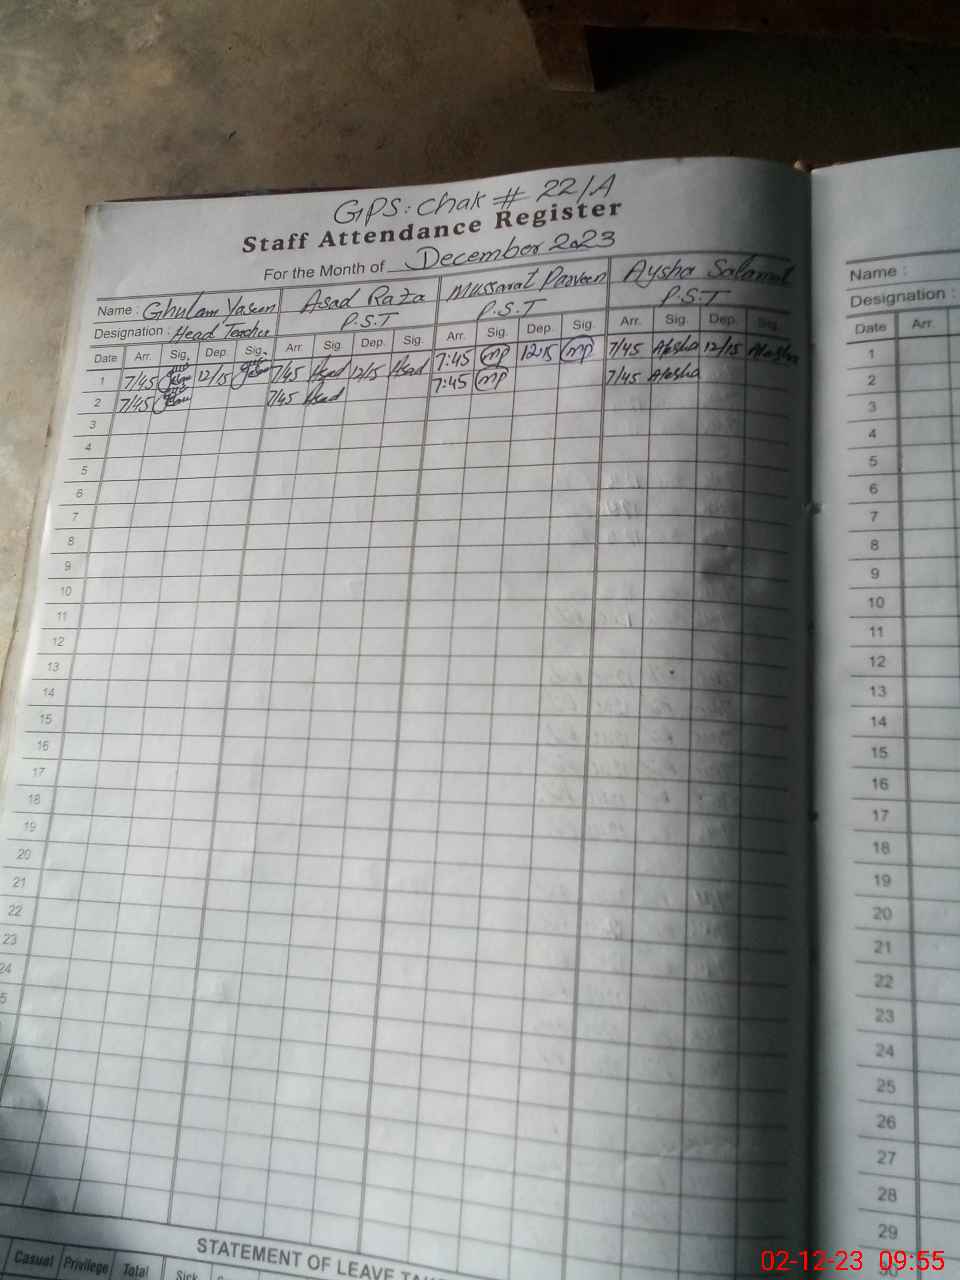 GPS: Chak # 22/A
Staff Attendance Register
For the Month of December 2023
Name : Ghulam Yaseen Asad Raza Mussarat Parveen Aysha Salamat
Designation : Head Teacher P.S.T P.S.T P.S.T
Date Arr. Sig. Dep. Sig. Arr. Sig. Dep. Sig. Arr. Sig. Dep. Sig. Arr. Sig. Dep. Sig.
1 7/45 12/15 7/45 12/15 7:45 MP 12:15 MP 7/45 12/15
2 7/45 7/45 7:45 MP 7/45
3
4
5
6
7
8
9
10
11
12
13
14
15
16
17
18
19
20
21
22
23
24
5
STATEMENT OF LEAVE
Casual Privilege Total Sick
Name :
Designation :
Date Arr.
1
2
3
4
5
6
7
8
9
10
11
12
13
14
15
16
17
18
19
20
21
22
23
24
25
26
27
28
29
30
02-12-23 09:55